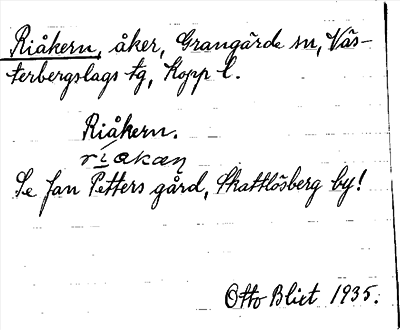 Riåkern, åker, Grangärde sn, Väs-
terbergslags tg, Kopp l.
Riåkern.
ríakaɳ
Se Jan Petters gård, Skattlösberg by!
Otto Blixt 1935.